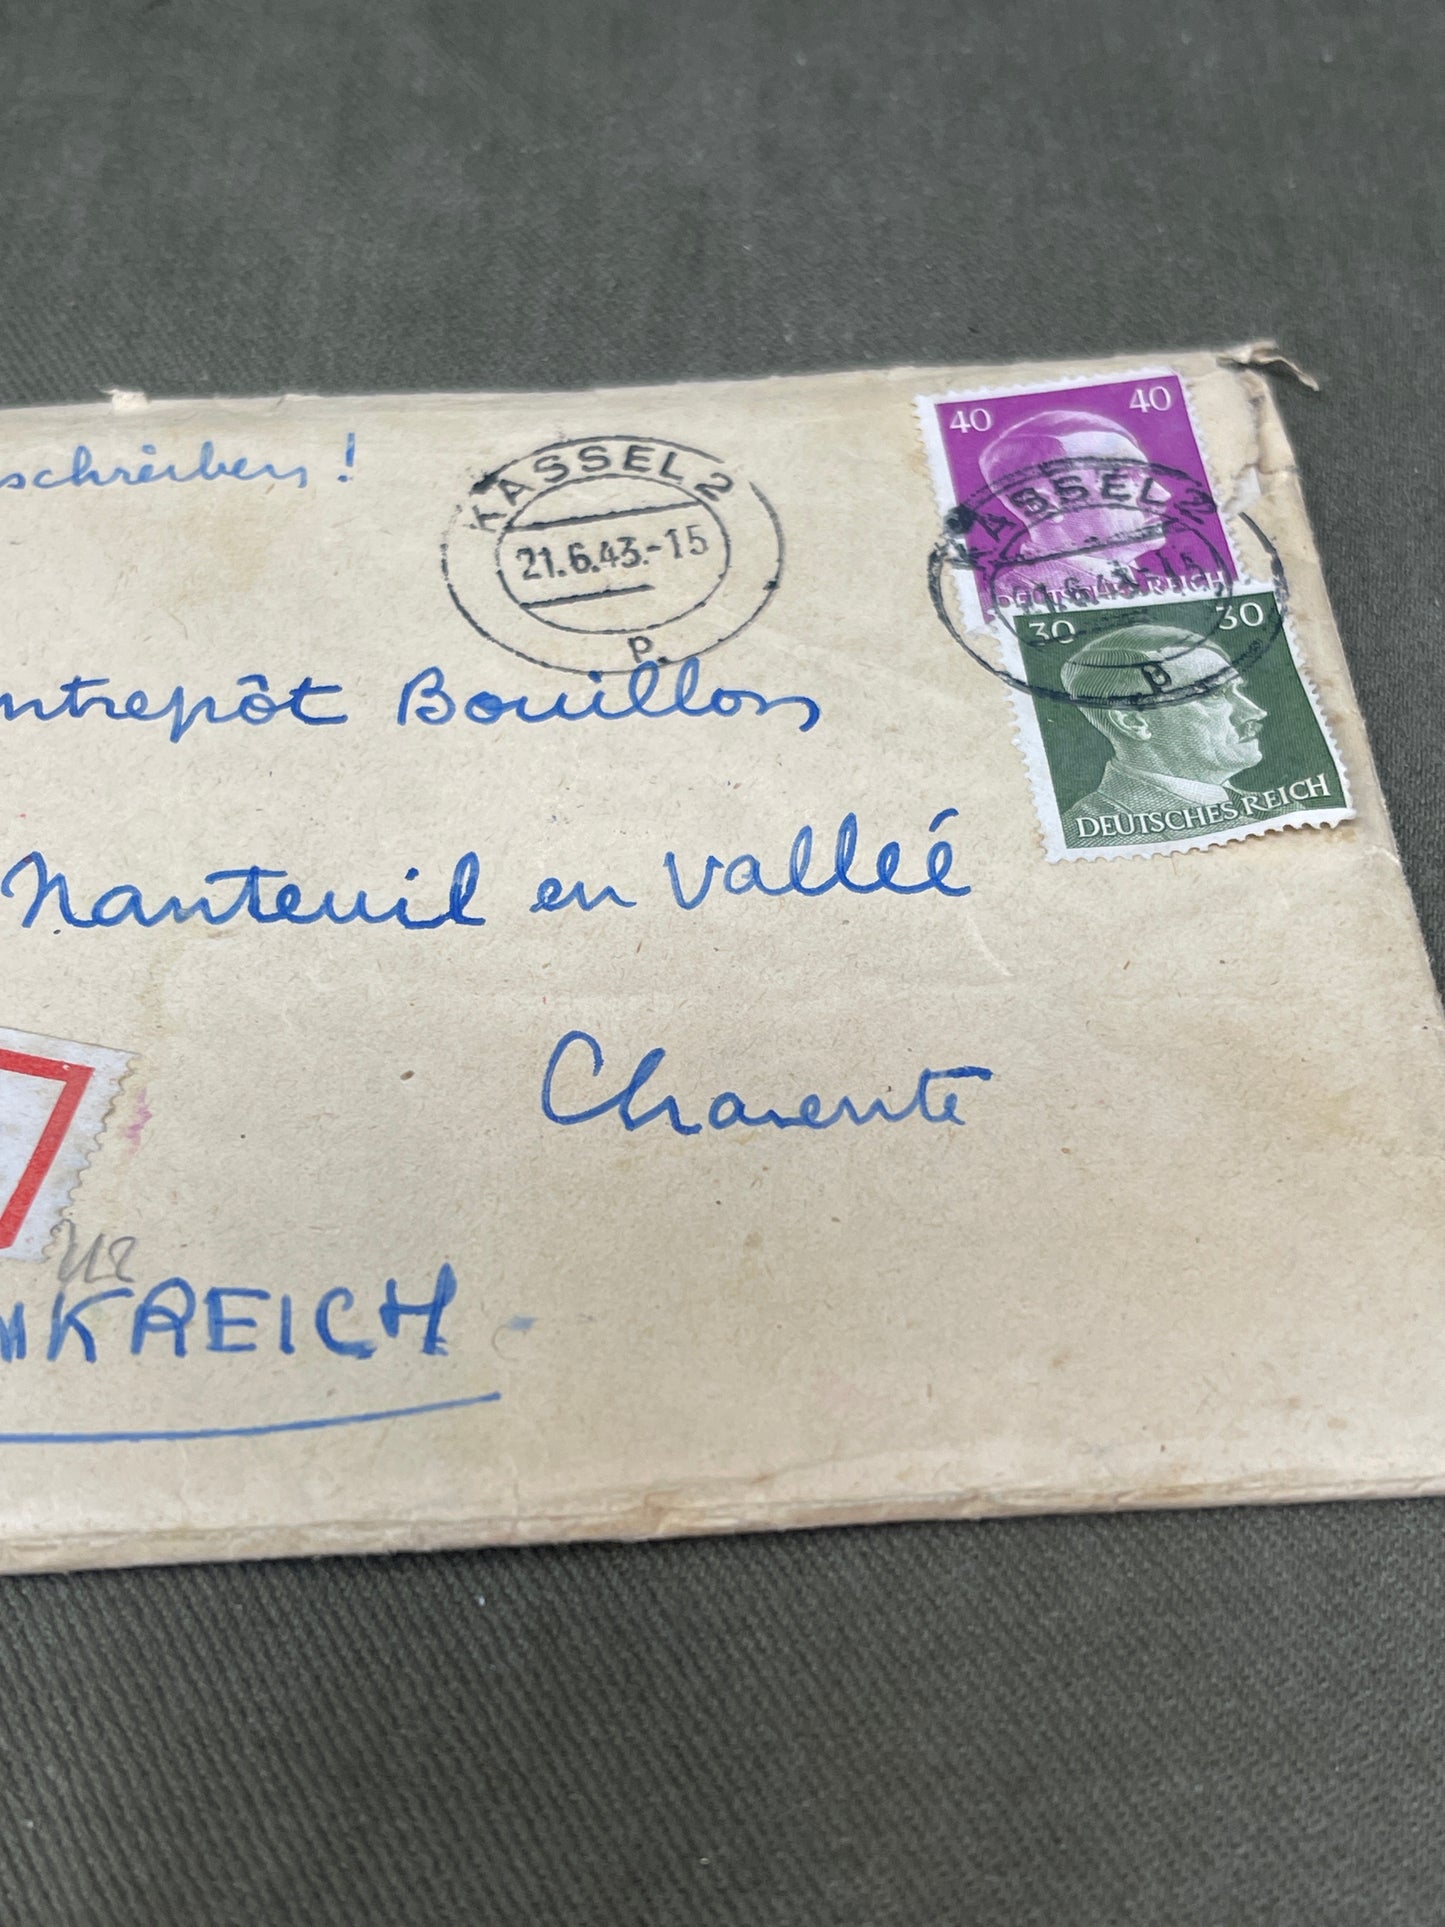 schreiben!
KASSEL 2
21.6.43.-15
p.
40 40
KASSEL 2
21.6.43.-15
DEUTSCHES REICH
p
30 30
DEUTSCHES REICH
ntrepôt Bouillon
Nanteuil en Valleé
Charente
NKREICH